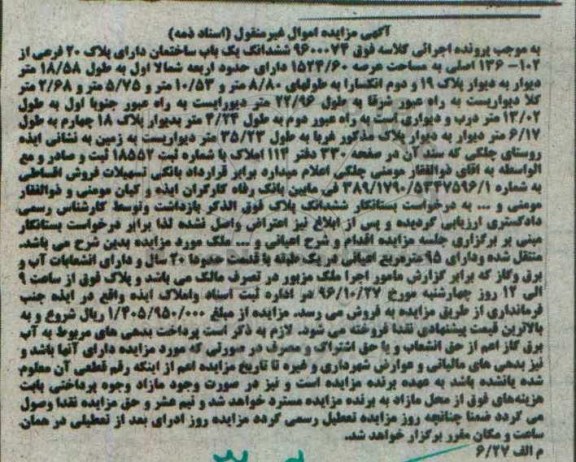 آگهی مزایده اموال غیرمنقول (اسناد ذمه)
به موجب پرونده اجرائی کلاسه فوق ۹۶۰۰۰۷۴ ششدانگ یک باب ساختمان دارای پلاک ۲۰ فرعی از
۱۰۲- ۱۳۶ اصلی به مساحت عرصه ۱۵۲۴/۶۰ دارای حدود اربعه شمالا اول به طول ۱۸/۵۸ متر
دیوار به دیوار پلاک ۱۹ و دوم انکسارا به طولهای ۸/۸۰ متر و ۱۰/۵۳ متر و ۵/۷۵ متر و ۲/۶۸ متر
کلا دیواریست به راه عبور شرقا به طول ۲۲/۹۶ متر دیواریست به راه عبور جنوبا اول به طول
۱۳/۰۲ متر درب و دیواری است به راه عبور دوم به طول ۳/۲۴ متر بدیوار پلاک ۱۸ چهارم به طول
۶/۱۷ متر دیوار به دیوار پلاک مذکور غربا به طول ۳۵/۲۳ متر دیواریست به زمین به نشانی ایذه
روستای چلگی که سند آن در صفحه ۳۳۰ دفتر ۱۱۴ املاک با شماره ثبت ۱۸۵۵۲ ثبت و صادر و مع
الواسطه به اقای ذوالفقار مومنی چلگی اعلام میدارد برابر قرارداد بانکی تسهیلات فروش اقساطی
به شماره ۳۸۹/۱۷۹۰/۵۳۳۷۵۹۶/۱ فی مابین بانک رفاه کارگران ایذه و کیان مومنی و ذوالفقار
مومنی و ... به درخواست بستانکار ششدانگ پلاک فوق الذکر بازداشت وتوسط کارشناس رسمی
دادگستری ارزیابی گردیده و پس از ابلاغ نیز اعتراض واصل نشده لذا برابر درخواست بستانکار
مبنی بر برگزاری جلسه مزایده اقدام و شرح اعیانی و ... ملک مورد مزایده بدین شرح می باشد.
منتقل شده ودارای ۹۵ مترمربع اعیانی در یک طبقه با قدمت حدودا ۲۰ سال و دارای انشعابات آب و
برق وگاز که برابر گزارش مامور اجرا ملک مزبور در تصرف مالک می باشد و پلاک فوق از ساعت ۹
الی ۱۲ روز چهارشنبه مورخ ۹۶/۱۰/۲۷ در اداره ثبت اسناد واملاک ایذه واقع در ایذه جنب
فرمانداری از طریق مزایده به فروش می رسد. مزایده از مبلغ ۱/۴۰۵/۹۵۰/۰۰۰ ریال شروع و به
بالاترین قیمت پیشنهادی نقدا فروخته می شود. لازم به ذکر است پرداخت بدهی های مربوط به آب
برق گاز اعم از حق انشعاب و یا حق اشتراک و مصرف در صورتی که مورد مزایده دارای آنها باشد و
نیز بدهی های مالیاتی و عوارض شهرداری و غیره تا تاریخ مزایده اعم از اینکه رقم قطعی آن معلوم
شده یانشده باشد به عهده برنده مزایده است و نیز در صورت وجود مازاد وجوه پرداختی بابت
هزینه‌های فوق از محل مازاد به برنده مزایده مسترد خواهد شد و نیم عشر و حق مزایده نقدا وصول
می گردد ضمنا چنانچه روز مزایده تعطیل رسمی گردد مزایده روز اداری بعد از تعطیلی در همان
ساعت و مکان مقرر برگزار خواهد شد.
م الف ۶/۲۷